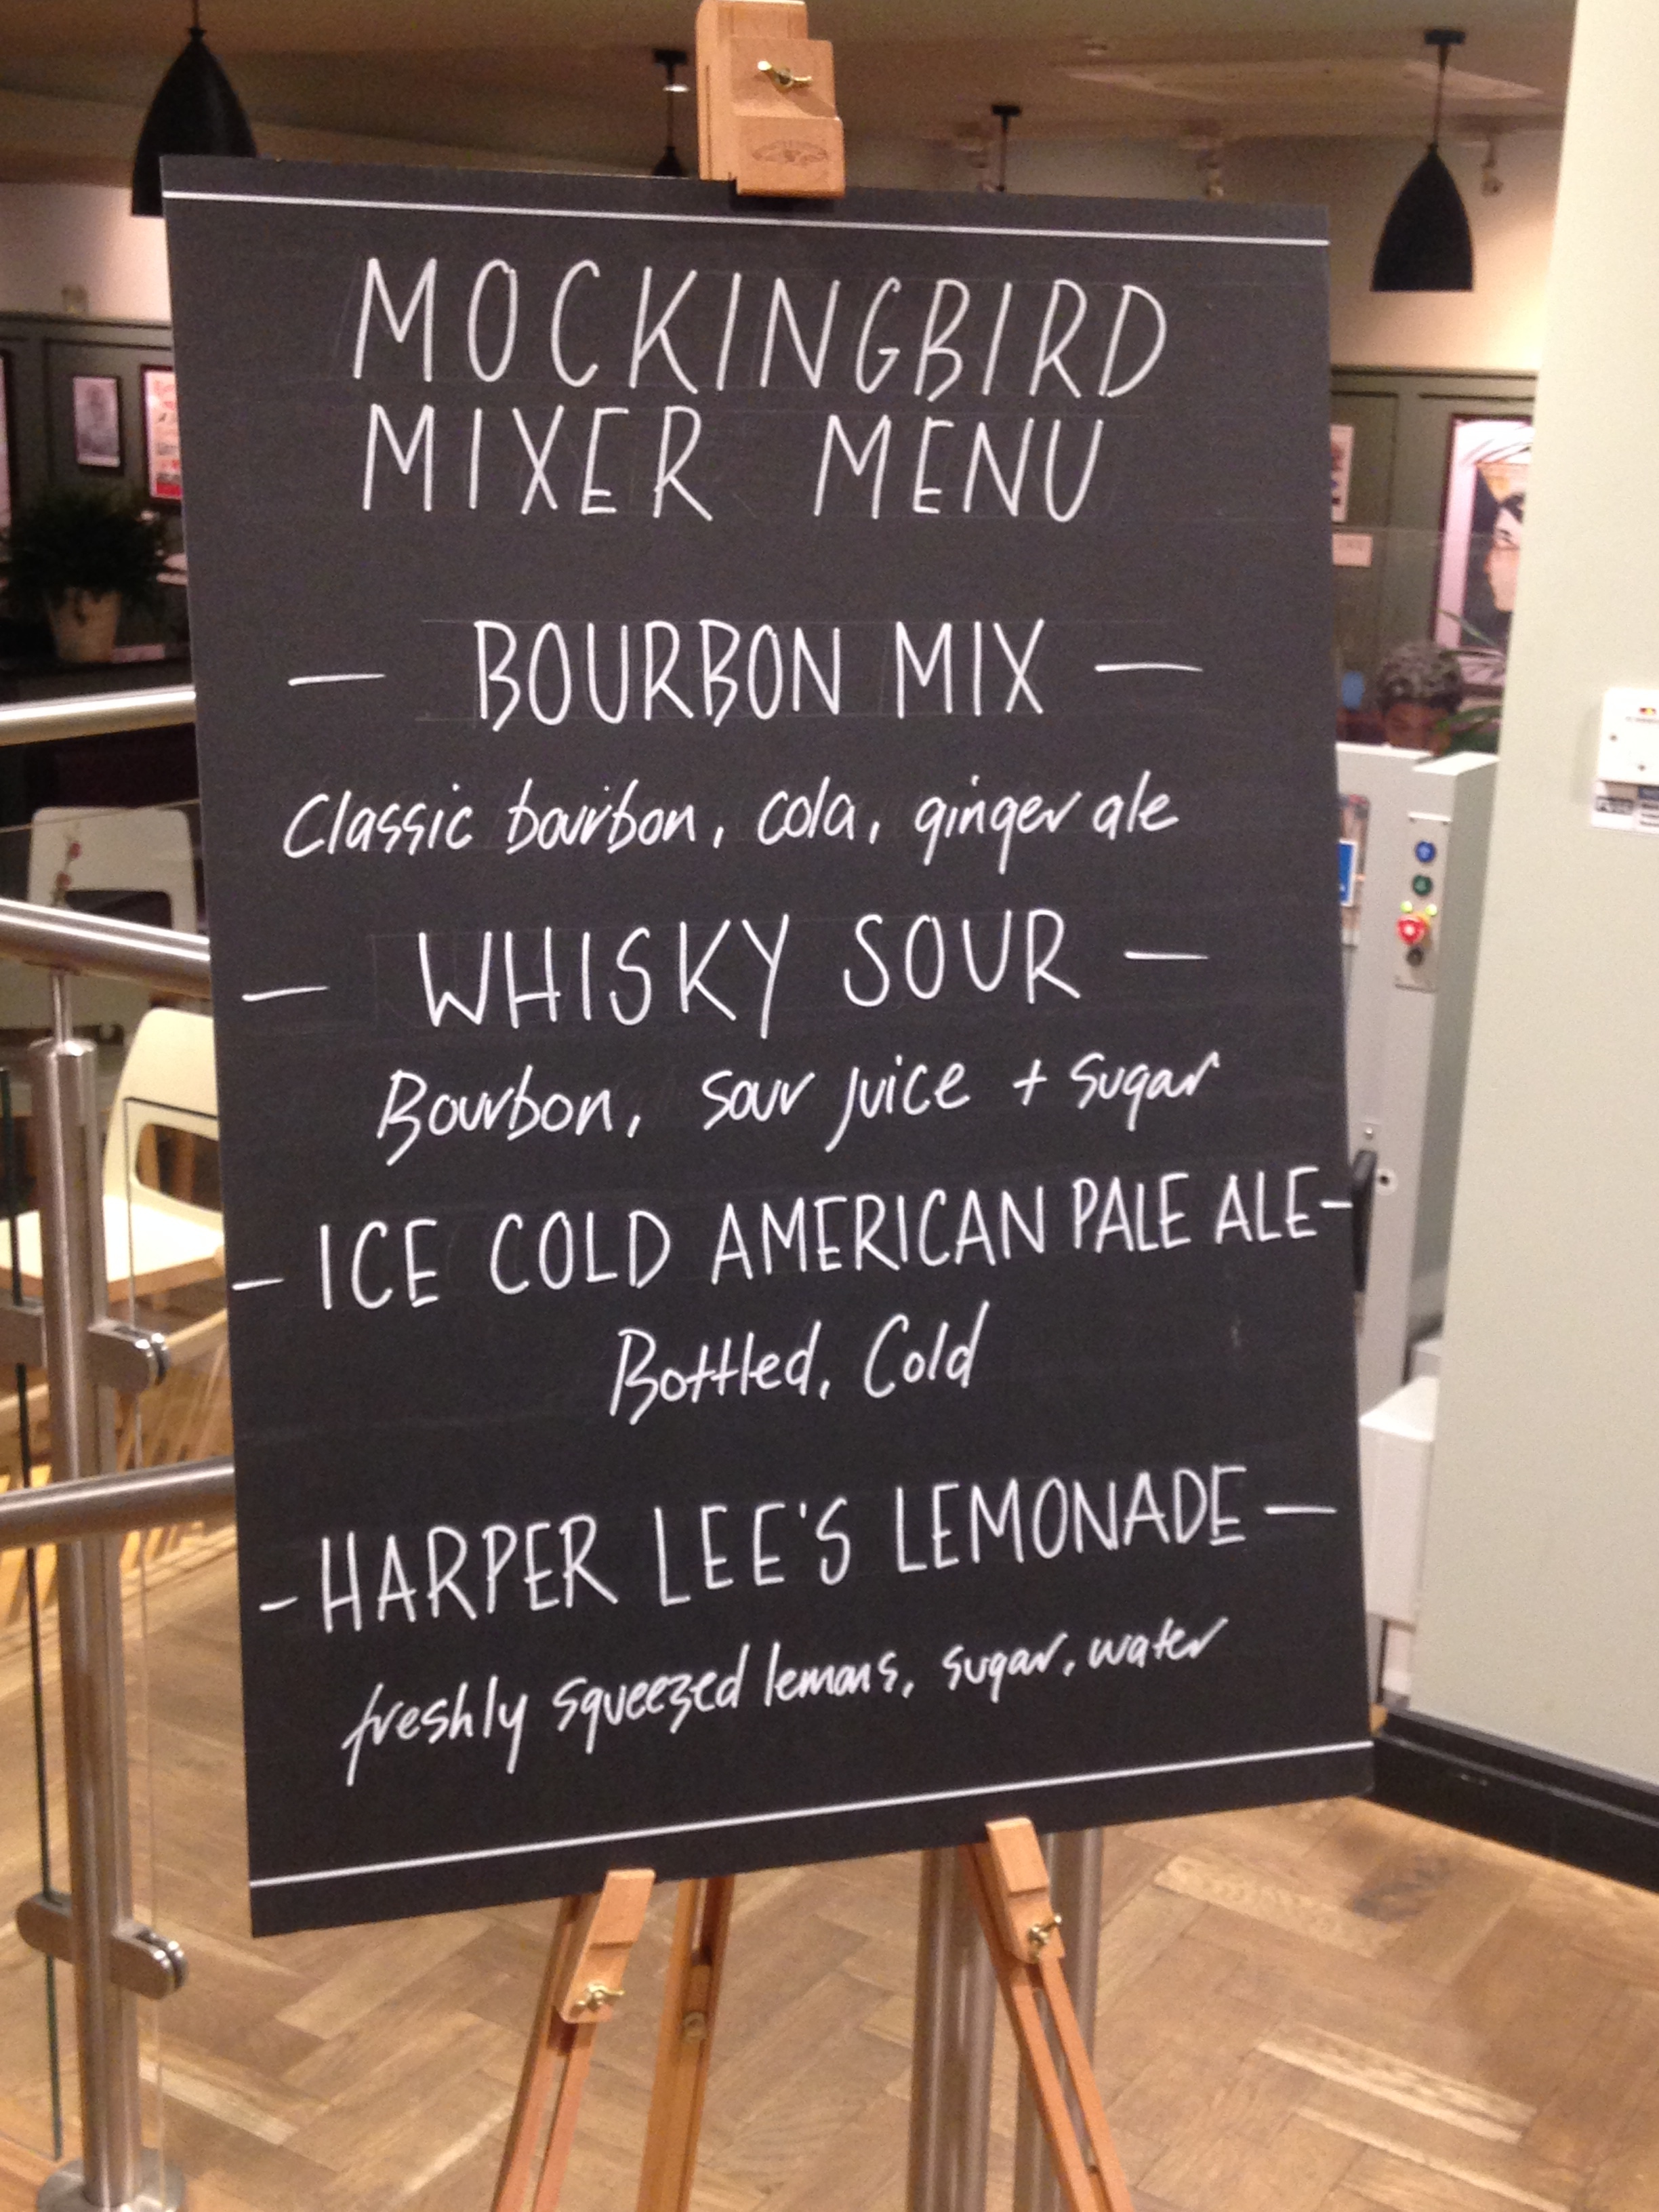 MOCKINGBIRD
MIXER MENU
— BOURBON MIX —
Classic bourbon, cola, ginger ale
— WHISKY SOUR —
Bourbon, sour juice + sugar
- ICE COLD AMERICAN PALE ALE -
Bottled, Cold
- HARPER LEE'S LEMONADE —
freshly squeezed lemons, sugar, water